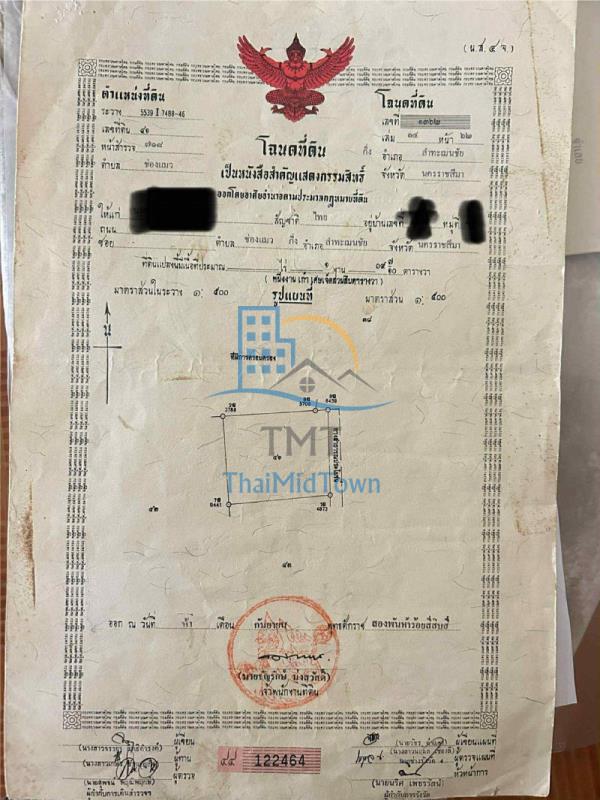 (น.ส.๔ จ.)
ตำแหน่งที่ดิน
ระวาง 5539 I 7488-46
เลขที่ดิน ๔๑
หน้าสำรวจ ๗๑๘
ตำบล ช่องแมว
โฉนดที่ดิน
เลขที่ ๑๓๖๒
เล่ม ๑๔ หน้า ๖๒
กิ่ง อำเภอ ลำทะเมนชัย
จังหวัด นครราชสีมา
โฉนดที่ดิน
เป็นหนังสือสำคัญแสดงกรรมสิทธิ์
ออกโดยอาศัยอำนาจตามประมวลกฎหมายที่ดิน
ให้แก่ สัญชาติ ไทย อยู่บ้านเลขที่ หมู่ที่
ถนน
ซอย ตำบล ช่องแมว กิ่ง อำเภอ ลำทะเมนชัย จังหวัด นครราชสีมา
ที่ดินแปลงนี้มีเนื้อที่ประมาณ ไร่ ๑ งาน ๑๙ ๗/๑๐ ตารางวา
(หนึ่งงานเก้าเศษเจ็ดส่วนสิบตารางวา)
มาตราส่วนในระวาง ๑: ๕๐๐
รูปแผนที่
มาตราส่วน ๑: ๕๐๐
น
ที่มีการครอบครอง
3788
5700
6439
TMT
ThaiMidTown
4873
๔๒
๔๓
ออก ณ วันที่ ห้า เดือน กันยายน พุทธศักราช สองพันห้าร้อยสี่สิบสี่
เจ้าพนักงานที่ดิน
ผู้เขียน
ผู้ทาน
ผู้ตรวจ
122464
ผู้เขียนแผนที่
ผู้ตรวจแผนที่
หัวหน้าการ
ผู้กำกับการเดินสำรวจฯ
ผู้กำกับการรังวัด